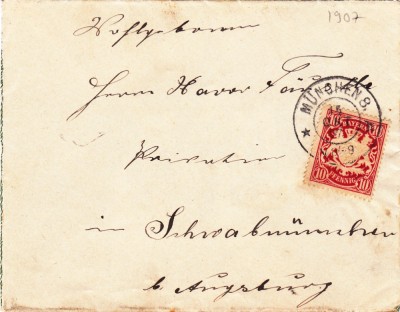 1907
Wohlgeboren
Herrn Xaver
MÜNCHEN 8.
BAYERN
10 PFENNIG 10
Privatier
in Schwabmünchen
b. Augsburg